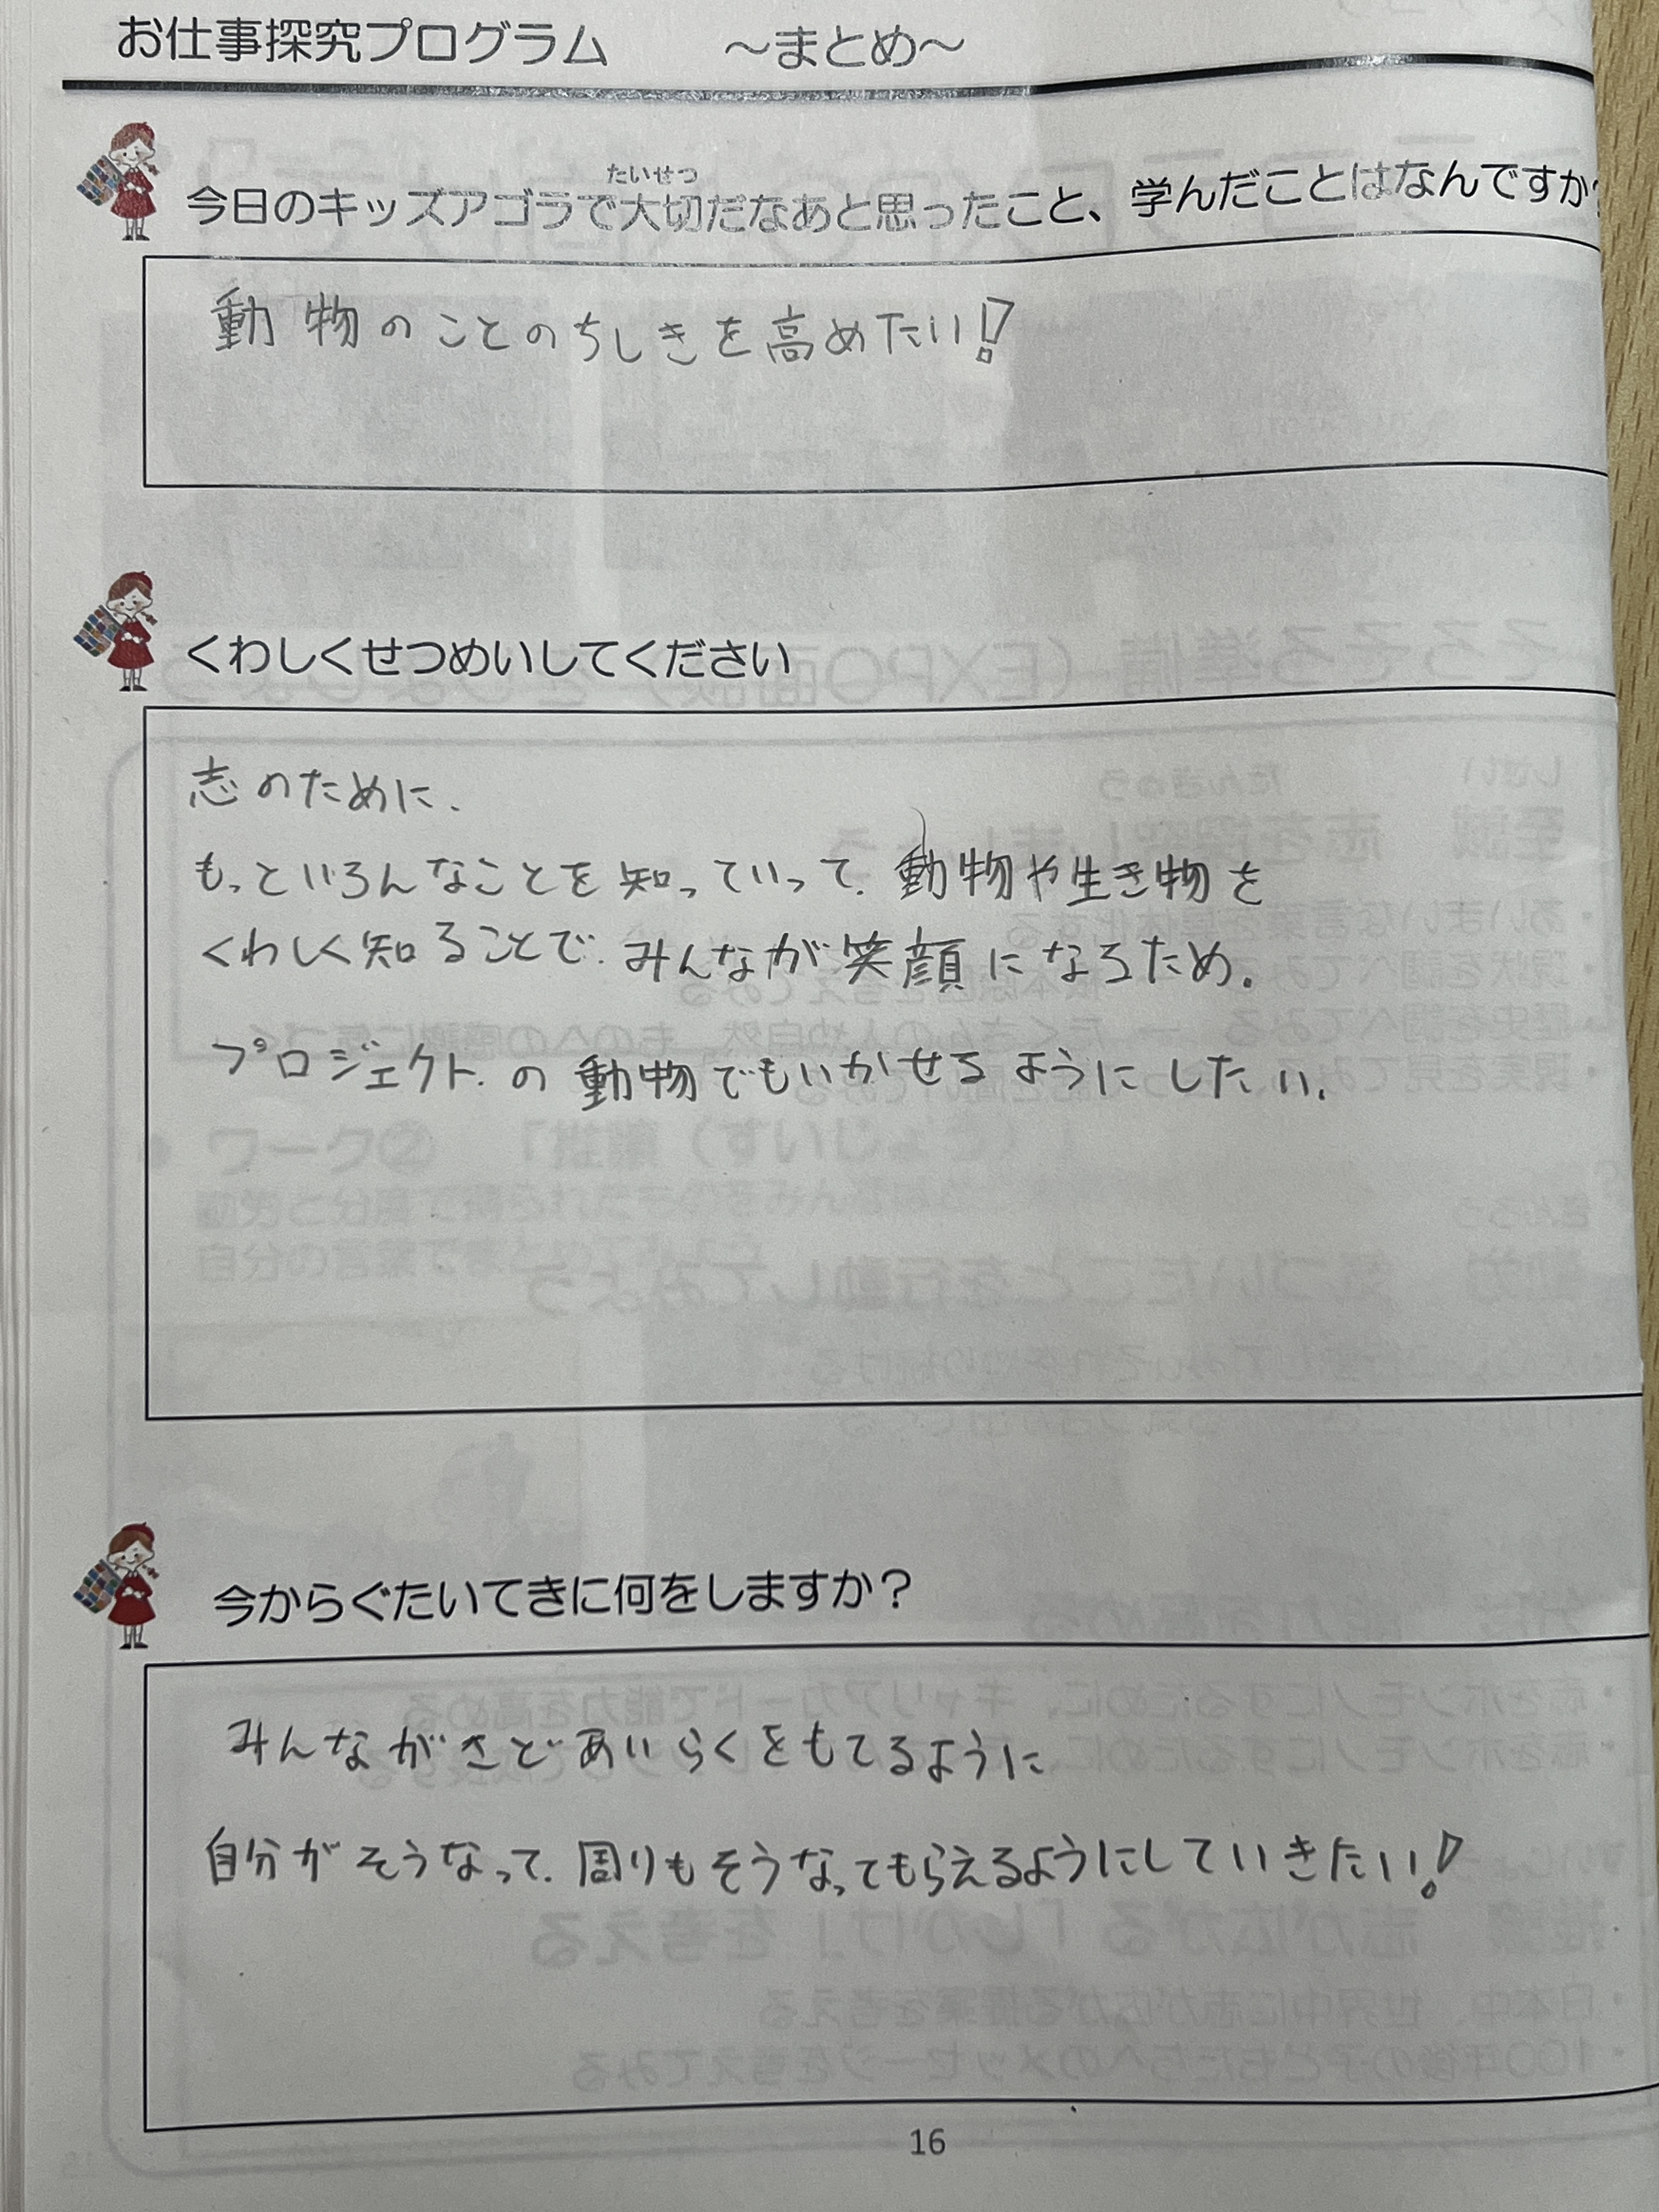 お仕事探究プログラム　　～まとめ～
たいせつ
今日のキッズアゴラで大切だなあと思ったこと、学んだことはなんですか?
動物のことのちしきを高めたい!
くわしくせつめいしてください
志のために、
もっといろんなことを知っていって、動物や生き物を
くわしく知ることで、みんなが笑顔になるため。
プロジェクト、の動物でもいかせるようにしたい。
今からぐたいてきに何をしますか？
みんながきどあいらくをもてるように
自分がそうなって、周りもそうなってもらえるようにしていきたい!
16